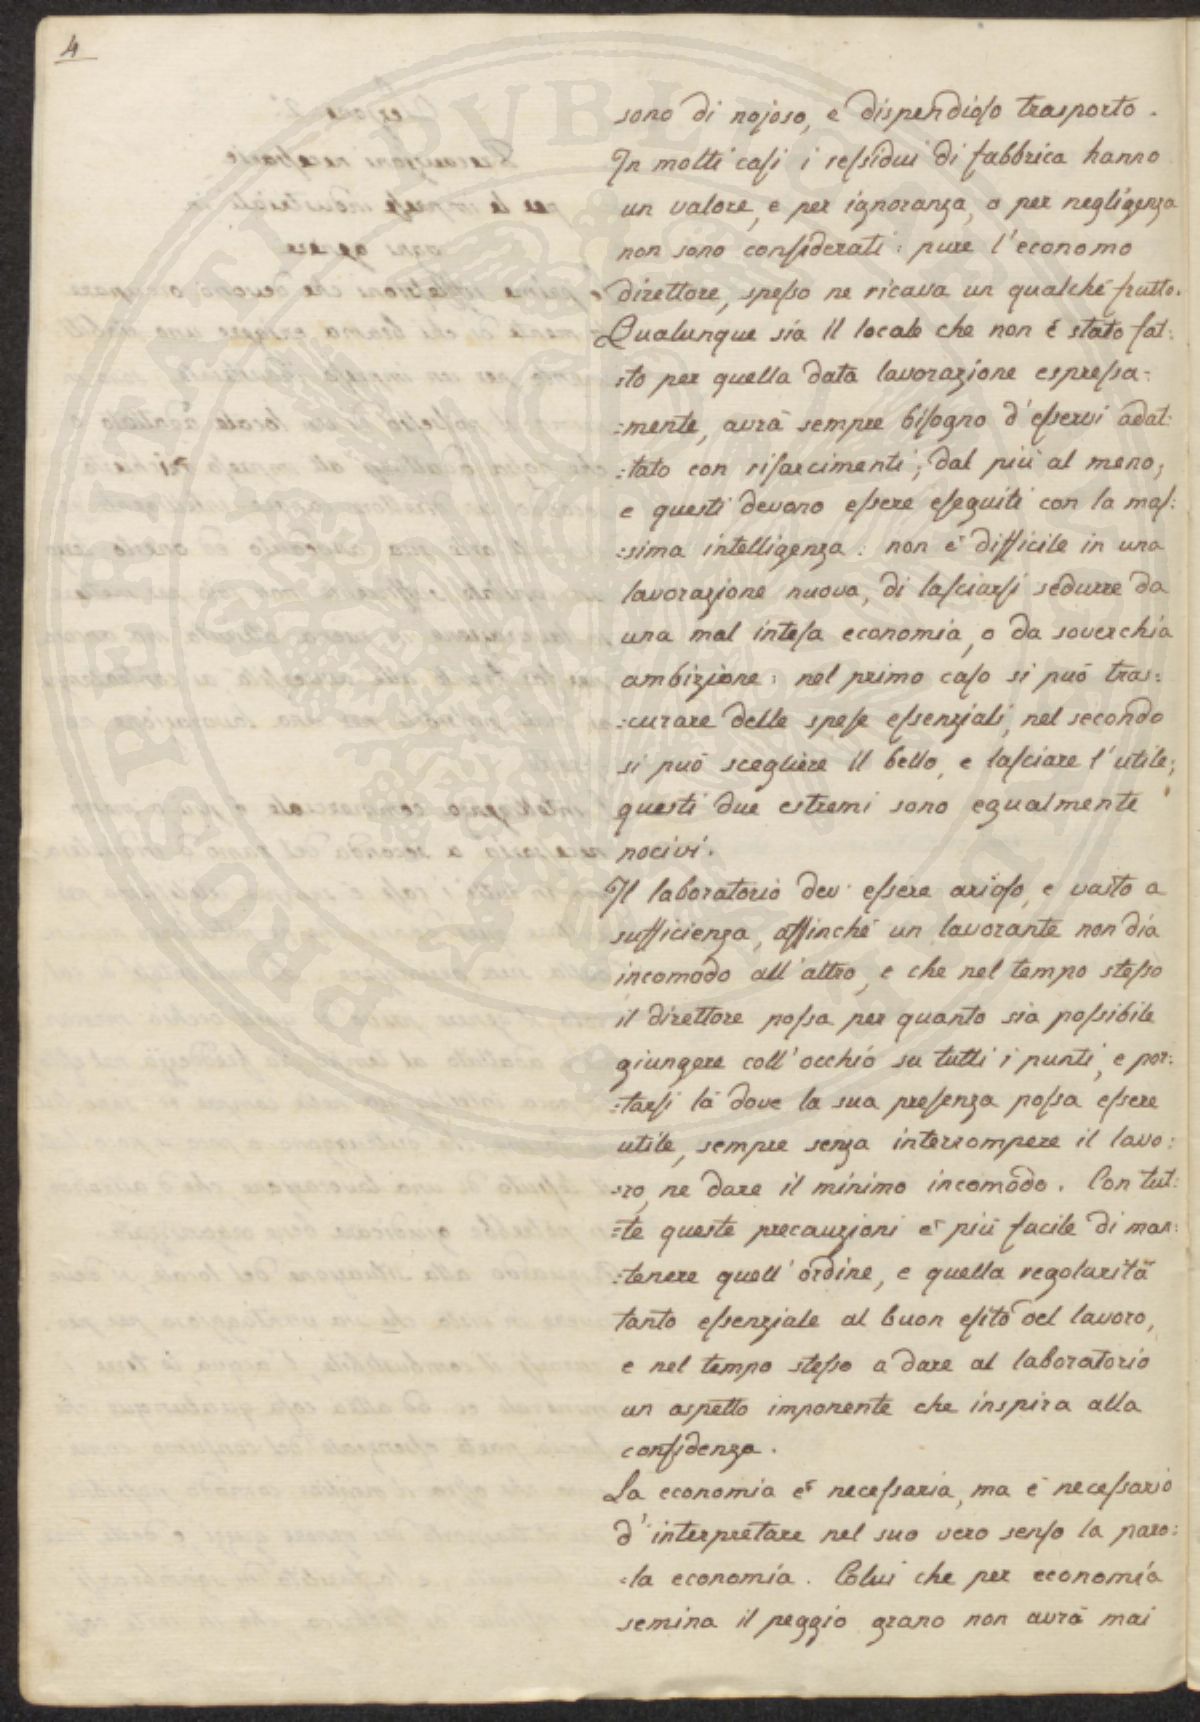 4
sono di nojoso, e dispendioſo trasporto.
In molti caſi i reſsidui di fabbrica hanno
un valore, e per ignoranza, o per negligenza
non sono conſiderati: pure l'economo
direttore, speſso ne ricava un qualche frutto.
Qualunque sia il locale che non è stato fat:
:to per quella data lavorazione espreſsa:
:mente, avrà sempre biſogno d'eſservi adat:
:tato con riſarcimenti, dal più al meno,
e questi devono eſsere eſeguiti con la maſ:
:sima intelligenza: non è difficile in una
lavorazione nuova, di laſciarſi sedurre da
una mal inteſa economia, o da soverchia
ambizione: nel primo caſo si può tras:
:curare delle speſe eſsenziali, nel secondo
si può scegliere il bello, e laſciare l'utile;
questi due estremi sono egualmente
nocivi.
Il laboratorio dev'eſsere arioſo, e vasto a
sufficienza, affinchè un lavorante non dia
incomodo all'altro, e che nel tempo steſso
il direttore poſsa per quanto sia poſsibile
giungere coll'occhio su tutti i punti, e por:
:tarſi là dove la sua preſenza poſsa eſsere
utile, sempre senza interrompere il lavo:
:ro, ne dare il minimo incomodo. Con tut:
:te queste precauzioni è più facile di man:
:tenere quell'ordine, e quella regolarità
tanto eſsenziale al buon eſito del lavoro,
e nel tempo steſso a dare al laboratorio
un aspetto imponente che inspira alla
confidenza.
La economia è neceſsaria, ma è neceſsario
d'interpretare nel suo vero senſo la paro:
:la economia. Colui che per economia
semina il peggio grano non avrà mai